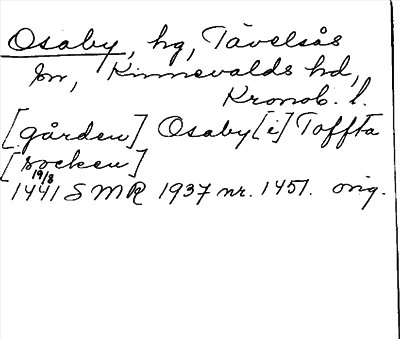 Osaby, hg, Tävelsås
sn, Kinnevalds hd,
Kronob. l.
[gården] Osaby [i] Toffta
[socken]
19/8
1441 SMR 1937 nr. 1451. orig.